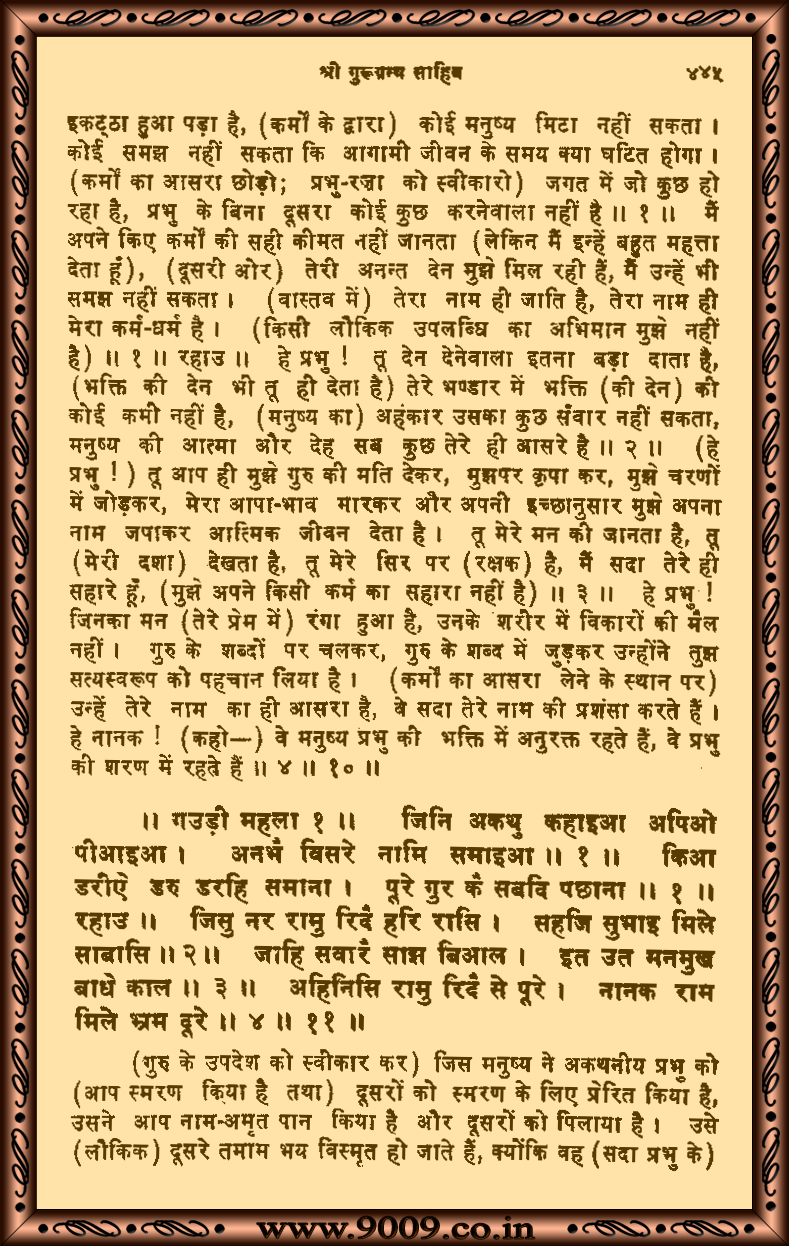 श्री गुरूग्रन्थ साहिब ४४५
इकट्ठा हुआ पड़ा है, (कर्मों के द्वारा) कोई मनुष्य मिटा नहीं सकता ।
कोई समझ नहीं सकता कि आगामी जीवन के समय क्या घटित होगा ।
(कर्मों का आसरा छोड़ो; प्रभु-रज़ा को स्वीकारो) जगत में जो कुछ हो
रहा है, प्रभु के बिना दूसरा कोई कुछ करनेवाला नहीं है ॥ १ ॥ मैं
अपने किए कर्मों की सही कीमत नहीं जानता (लेकिन मैं इन्हें बहुत महत्ता
देता हूँ), (दूसरी ओर) तेरी अनन्त देन मुझे मिल रही हैं, मैं उन्हें भी
समझ नहीं सकता । (वास्तव में) तेरा नाम ही जाति है, तेरा नाम ही
मेरा कर्म-धर्म है । (किसी लौकिक उपलब्धि का अभिमान मुझे नहीं
है) ॥ १ ॥ रहाउ ॥ हे प्रभु ! तू देन देनेवाला इतना बड़ा दाता है,
(भक्ति की देन भी तू ही देता है) तेरे भण्डार में भक्ति (की देन) की
कोई कमी नहीं है, (मनुष्य का) अहंकार उसका कुछ सँवार नहीं सकता,
मनुष्य की आत्मा और देह सब कुछ तेरे ही आसरे है ॥ २ ॥ (हे
प्रभु !) तू आप ही मुझे गुरु की मति देकर, मुझपर कृपा कर, मुझे चरणों
में जोड़कर, मेरा आपा-भाव मारकर और अपनी इच्छानुसार मुझे अपना
नाम जपाकर आत्मिक जीवन देता है । तू मेरे मन की जानता है, तू
(मेरी दशा) देखता है, तू मेरे सिर पर (रक्षक) है, मैं सदा तेरे ही
सहारे हूँ, (मुझे अपने किसी कर्म का सहारा नहीं है) ॥ ३ ॥ हे प्रभु !
जिनका मन (तेरे प्रेम में) रंगा हुआ है, उनके शरीर में विकारों की मैल
नहीं । गुरु के शब्दों पर चलकर, गुरु के शब्द में जुड़कर उन्होंने तुझ
सत्यस्वरूप को पहचान लिया है । (कर्मों का आसरा लेने के स्थान पर)
उन्हें तेरे नाम का ही आसरा है, वे सदा तेरे नाम की प्रशंसा करते हैं ।
हे नानक ! (कहो—) वे मनुष्य प्रभु की भक्ति में अनुरक्त रहते हैं, वे प्रभु
की शरण में रहते हैं ॥ ४ ॥ १० ॥
॥ गउड़ी महला १ ॥ जिनि अकथु कहाइआ अपिओ
पीआइआ । अनभै विसरे नामि समाइआ ॥ १ ॥ किआ
डरीऐ डरु डरहि समाना । पूरे गुर कै सबदि पछाना ॥ १ ॥
रहाउ ॥ जिसु नर रामु रिदै हरि रासि । सहजि सुभाइ मिले
साबासि ॥ २ ॥ जाहि सवारै साझ बिआल । इत उत मनमुख
बाधे काल ॥ ३ ॥ अहिनिसि रामु रिदै से पूरे । नानक राम
मिले भ्रम दूरे ॥ ४ ॥ ११ ॥
(गुरु के उपदेश को स्वीकार कर) जिस मनुष्य ने अकथनीय प्रभु को
(आप स्मरण किया है तथा) दूसरों को स्मरण के लिए प्रेरित किया है,
उसने आप नाम-अमृत पान किया है और दूसरों को पिलाया है । उसे
(लौकिक) दूसरे तमाम भय विस्मृत हो जाते हैं, क्योंकि वह (सदा प्रभु के)
www.9009.co.in